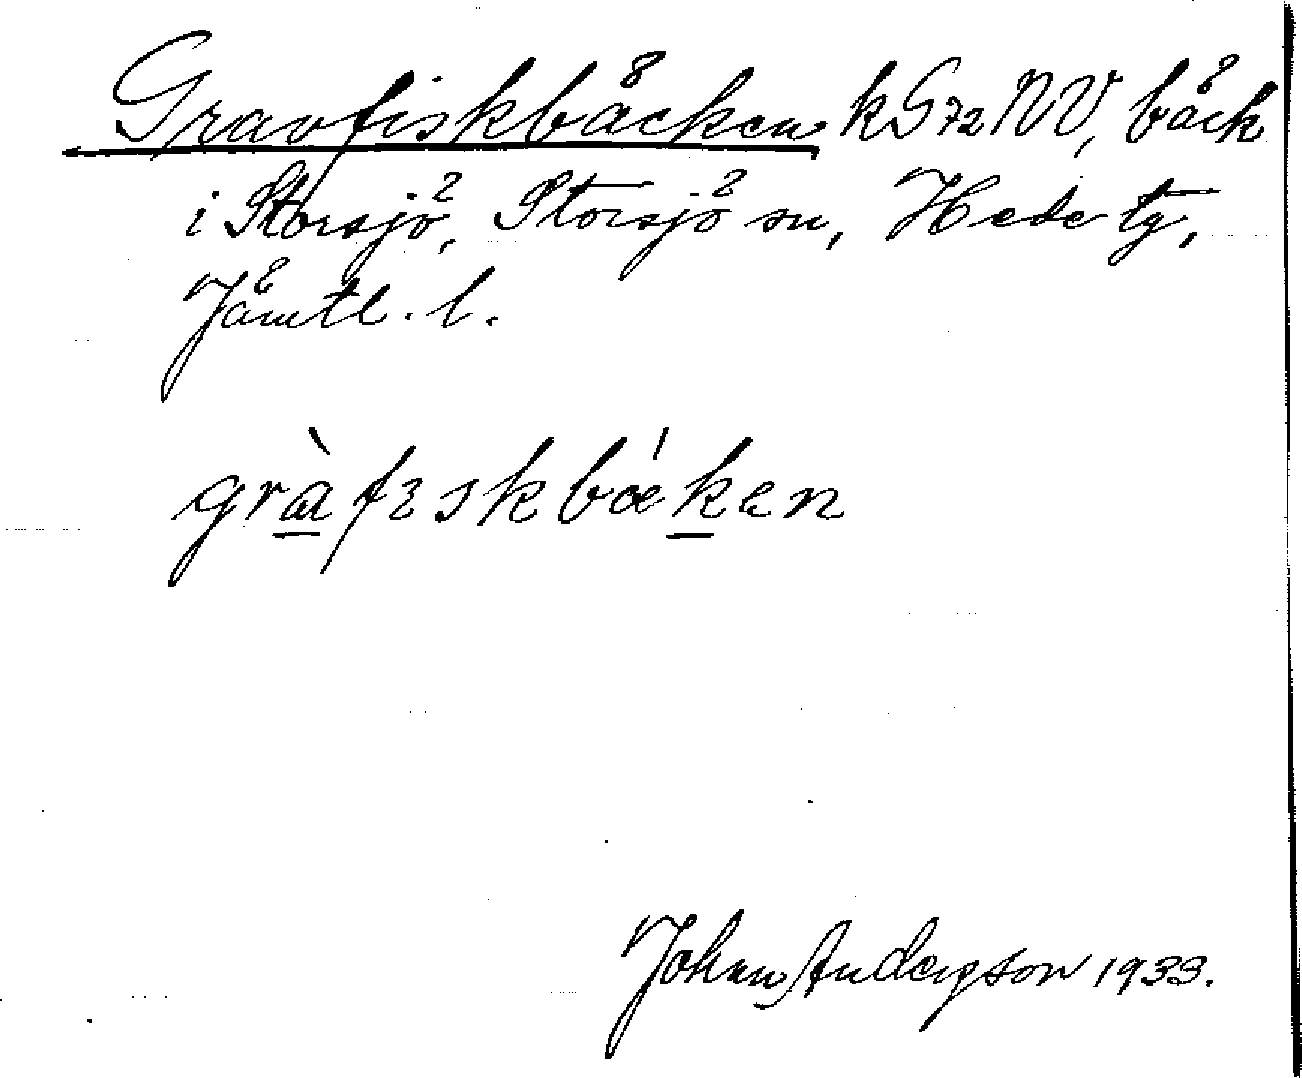 Gravfiskbäcken kG72NV, bäck
i Storsjö, Storsjö sn, Hede tg,
Jämtl. l.
gràfıskbǽken
Johan Anderson 1933.